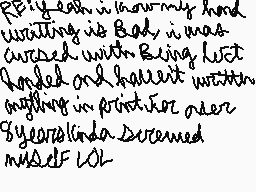 RE: yeah i know my hand
writing is Bad, i was
cursed with Being left
handed and havent written
anything in print for over
8 years kinda screwed
myself LOL